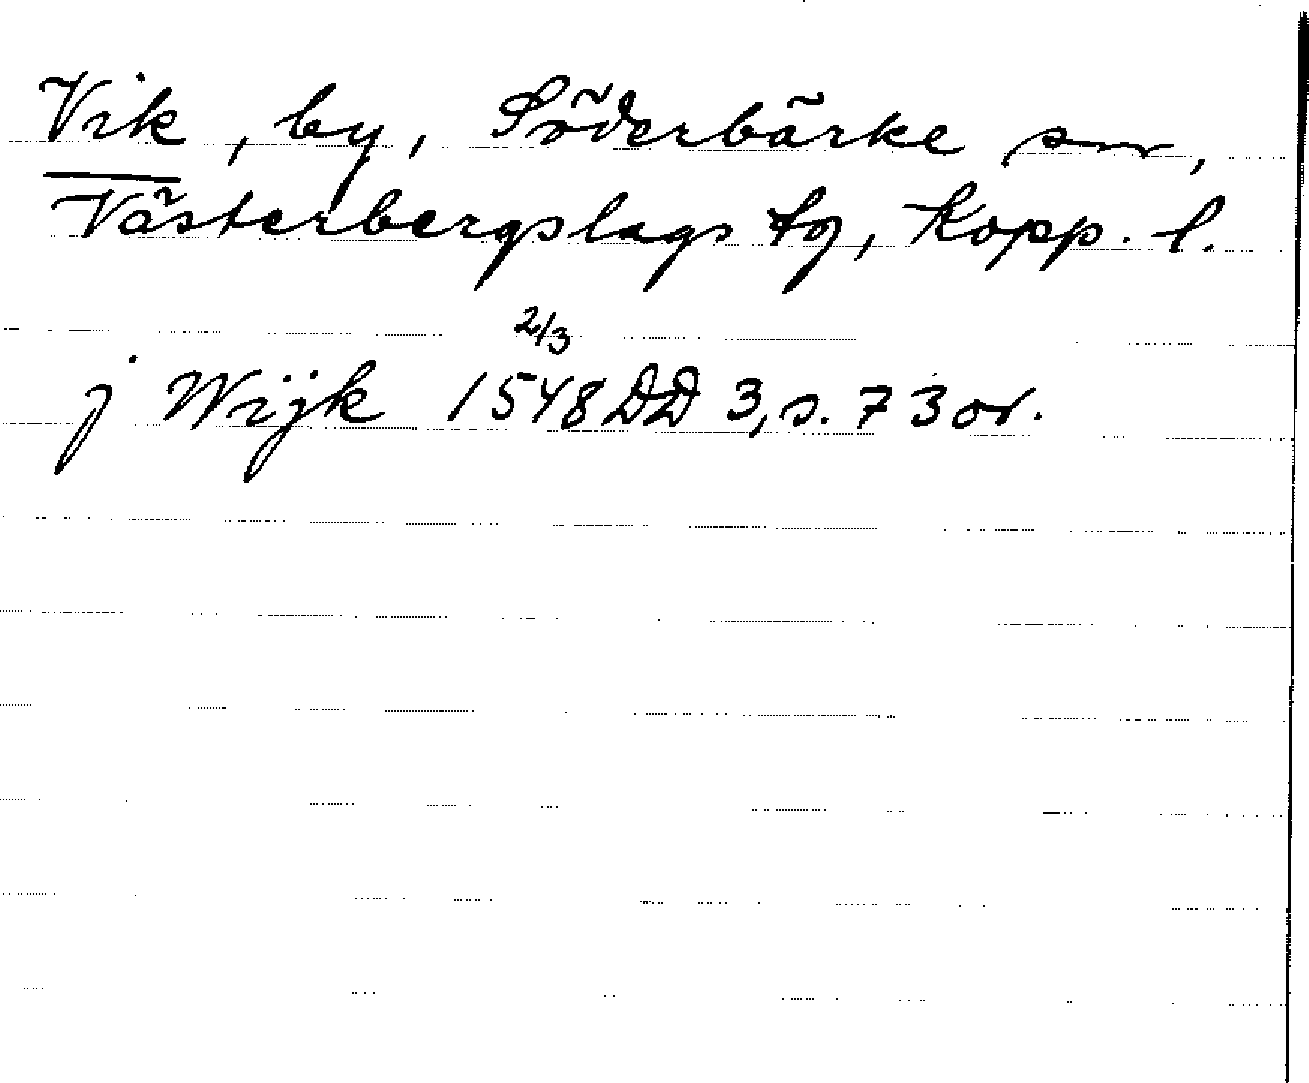 Vik, by, Söderbärke sn,
Västerbergslags tg, Kopp. l.
j Wijk 1548 2/3 DD 3, s. 73 or.